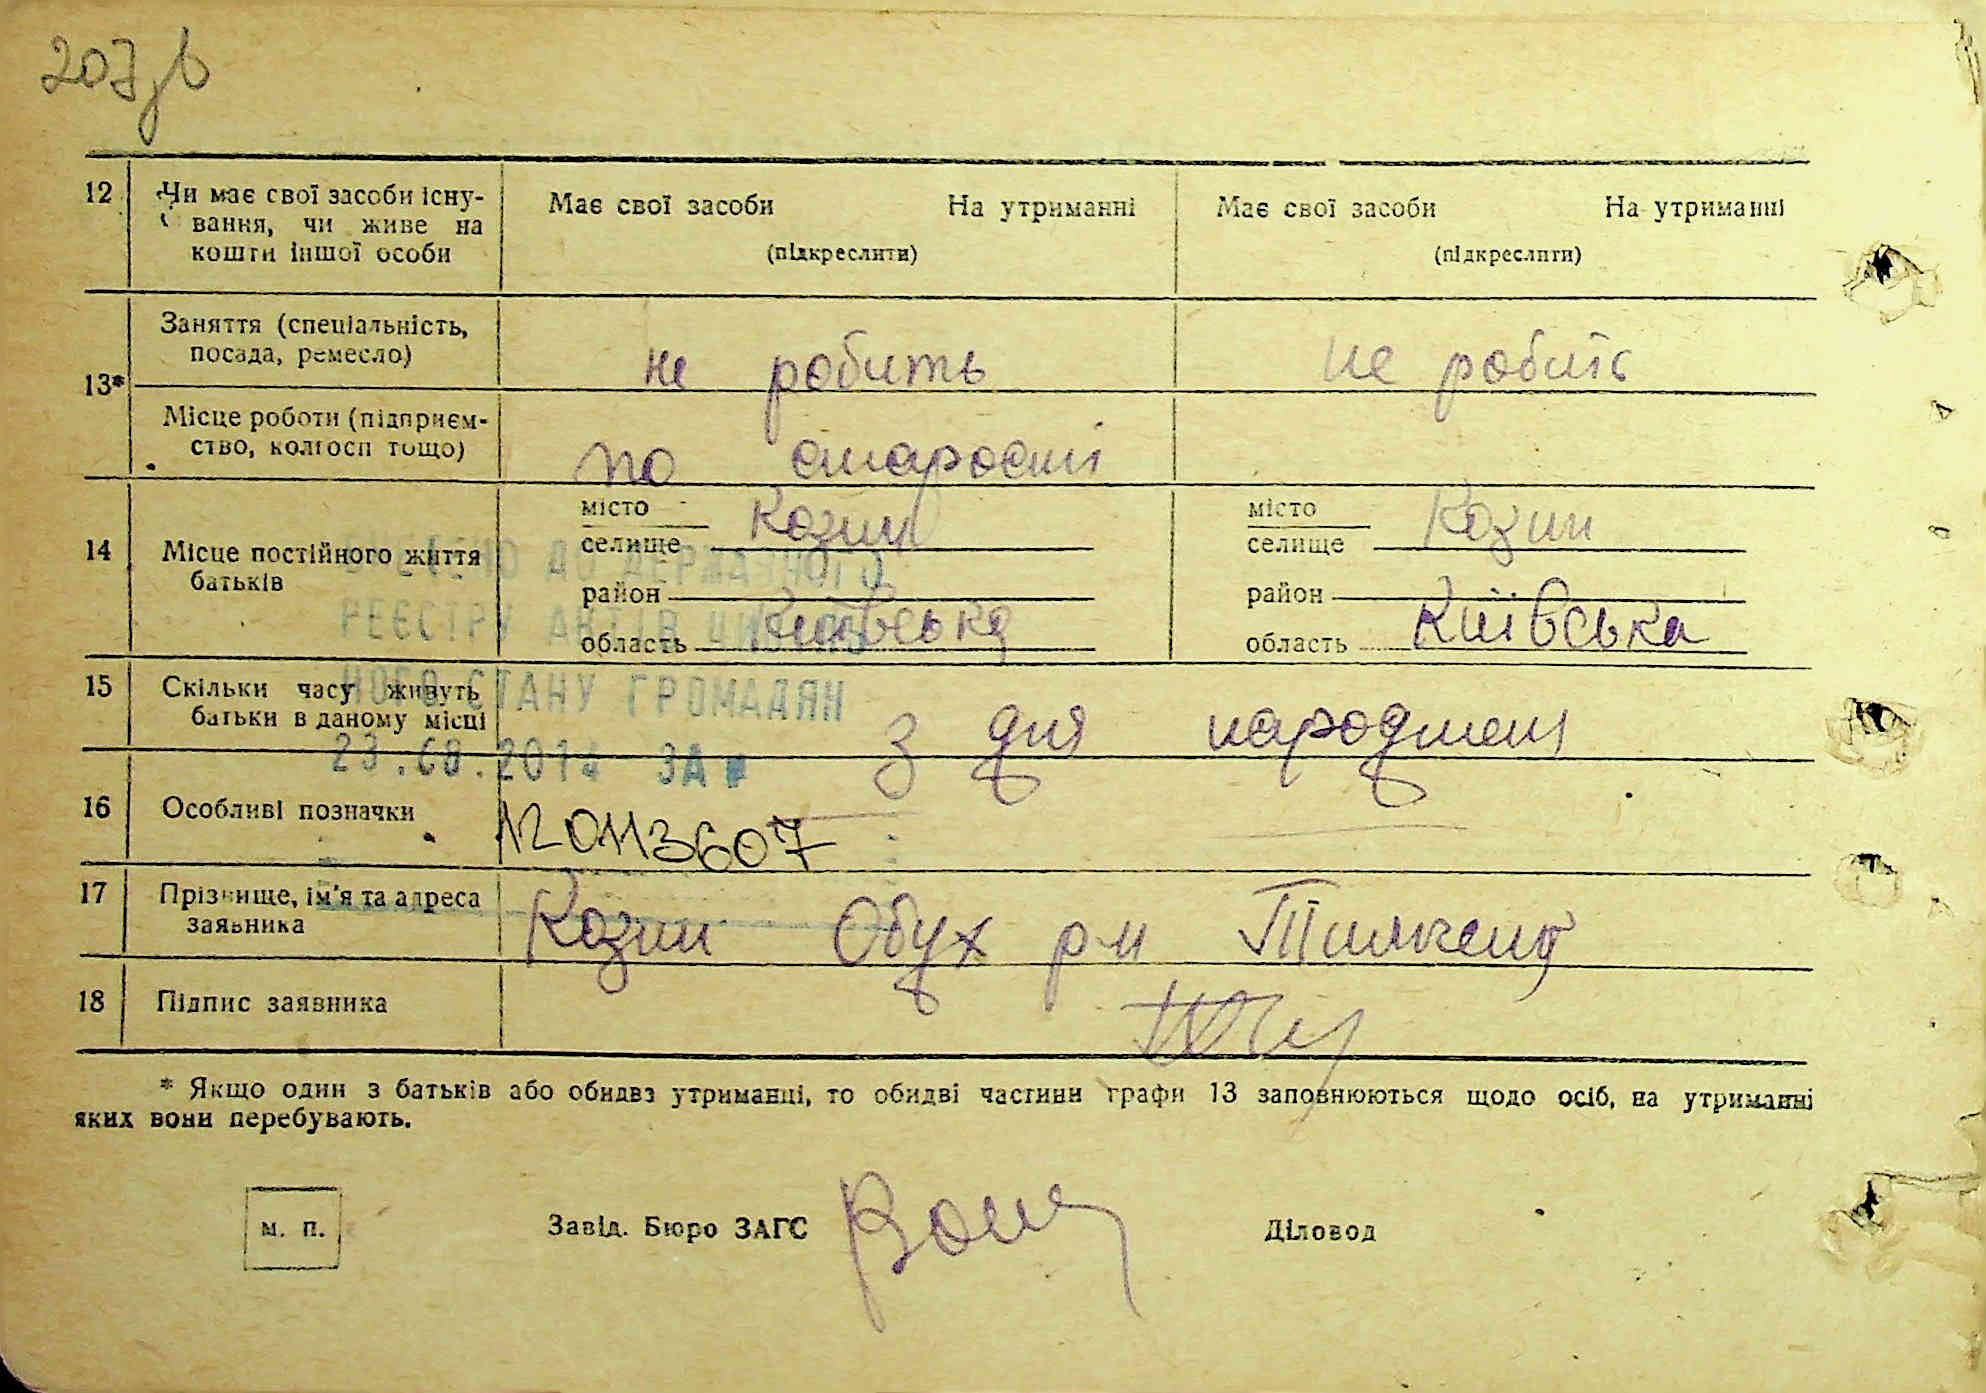 207зв
12 Чи має свої засоби існу- Має свої засоби На утриманні Має свої засоби На утриманні
вання, чи живе на (підкреслити) (підкреслити)
кошти іншої особи
Заняття (спеціальність, не робить не робить
посада, ремесло)
13*
Місце роботи (підприєм- по старості
ство, колгосп тощо)
місто Козин місто Козин
селище селище
14 Місце постійного життя
батьків
район район
область Київська область Київська
ДО ДЕРЖАВНОГО
РЕЄСТРУ АКТІВ ЦИВІЛЬ
НОГО СТАНУ ГРОМАДЯН
23.08.201 ЗА №
15 Скільки часу живуть з дня народжені
батьки в даному місці
16 Особливі позначки
120113607
17 Прізвище, ім'я та адреса Козин Обух р-н
заявника
18 Підпис заявника
* Якщо один з батьків або обидва утриманці, то обидві частини графи 13 заповнюються щодо осіб, на утриманні
яких вони перебувають.
м. п. Завід. Бюро ЗАГС Діловод